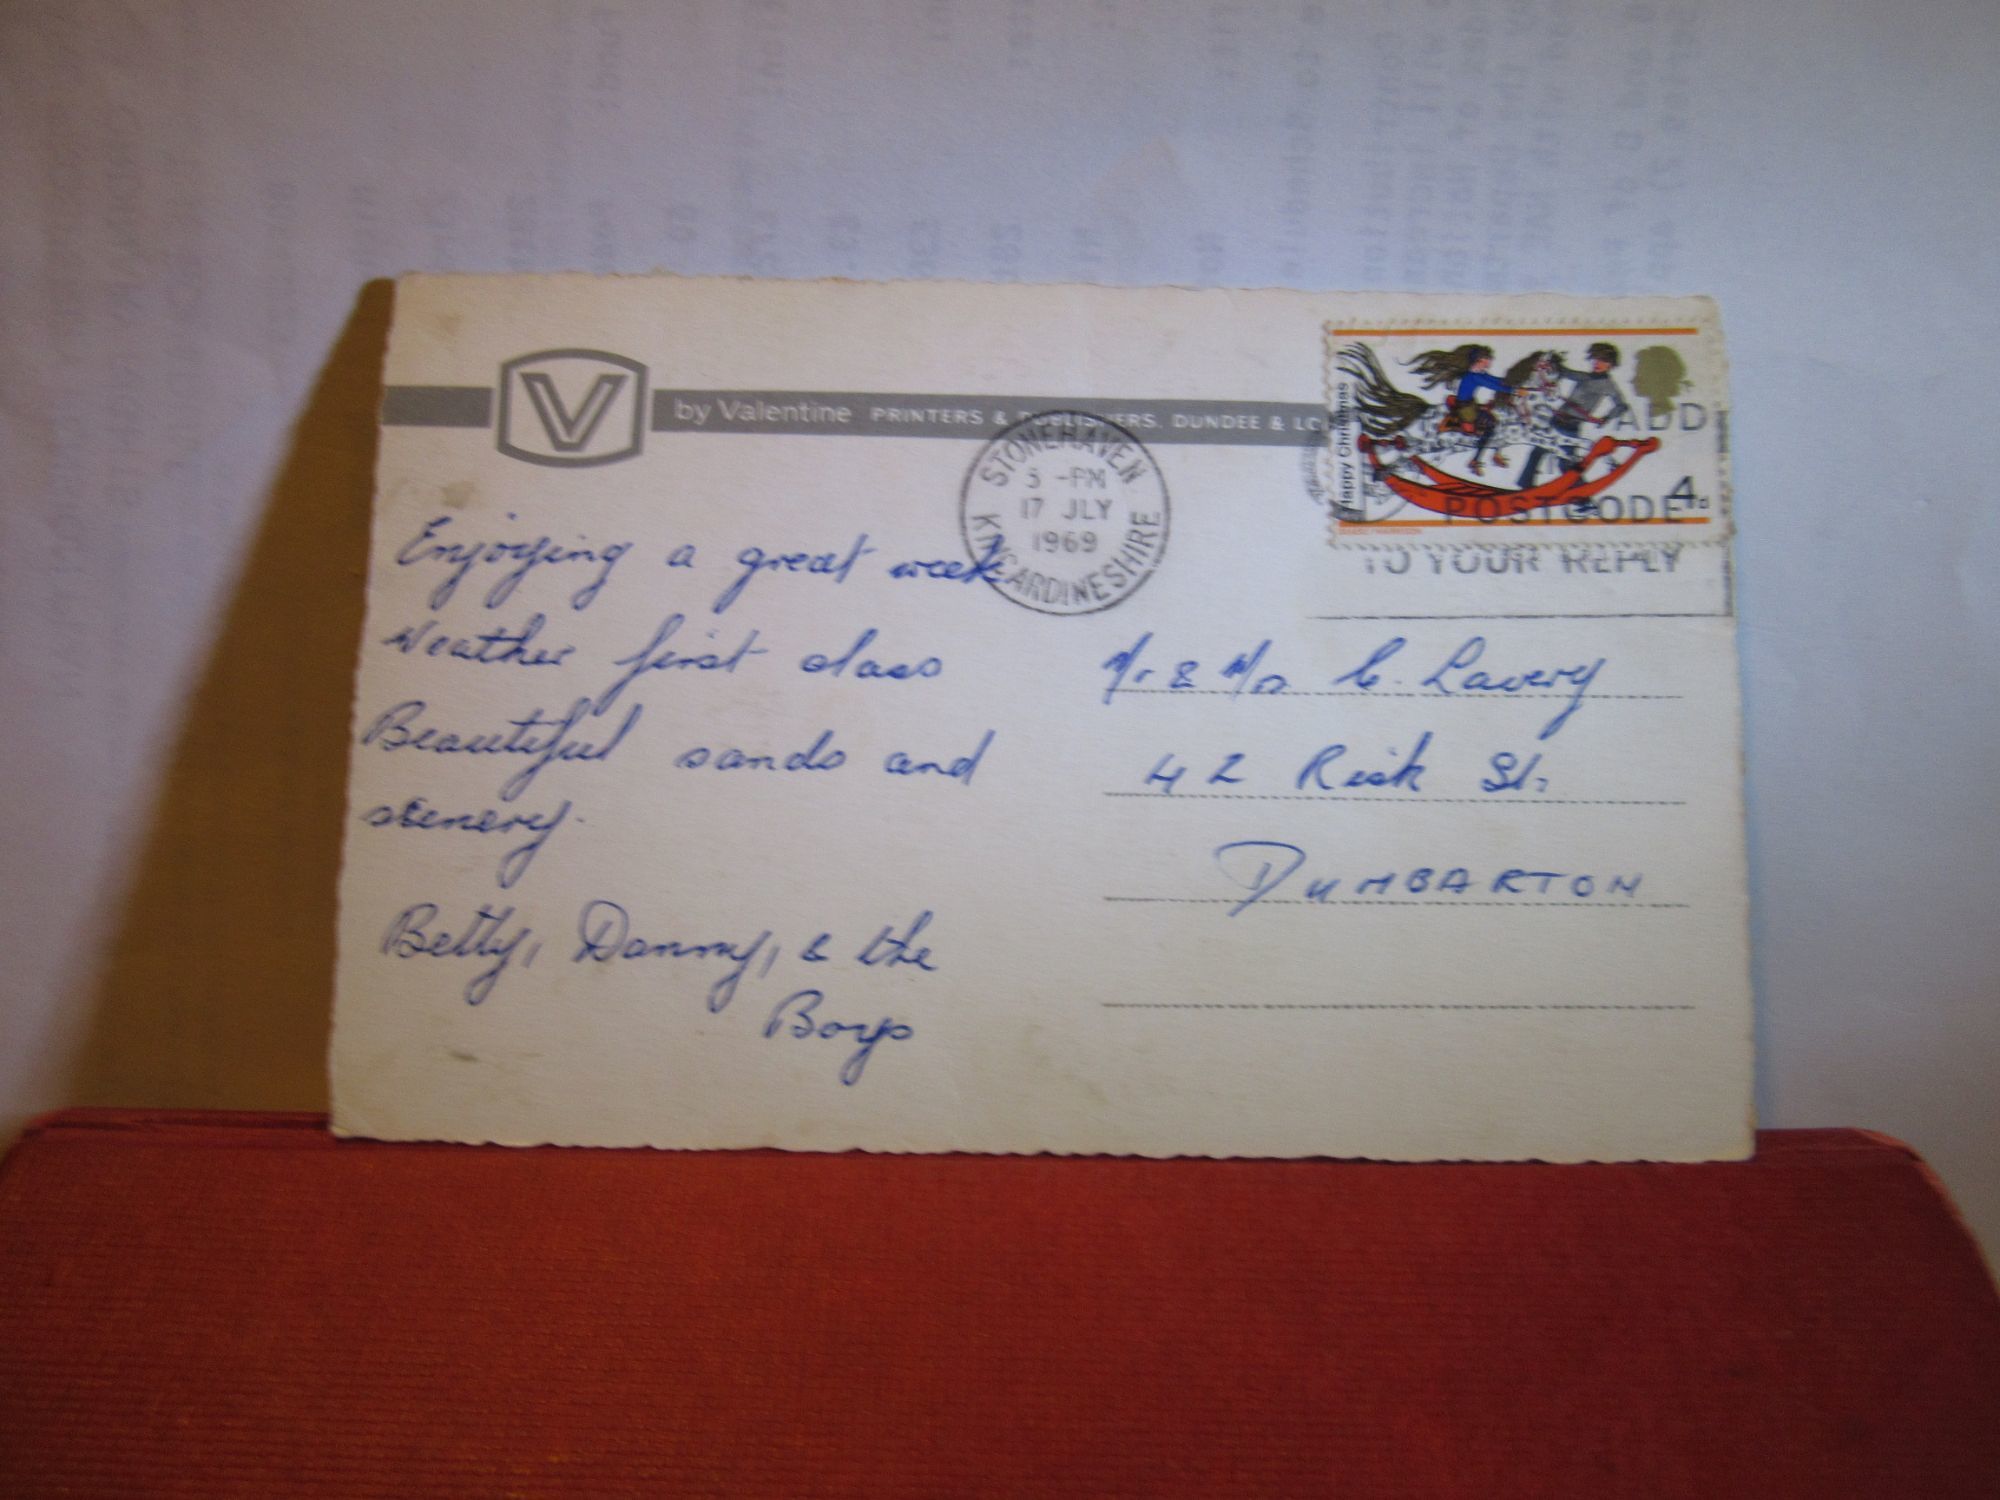 V by Valentine PRINTERS & PUBLISHERS, DUNDEE & LO
STONEHAVEN
5 -PM
17 JLY
1969
KINCARDINESHIRE
Happy Christmas
4d
ADD
POSTCODE
TO YOUR REPLY
Enjoying a great week
Weather first class
Beautiful sands and
scenery.
Betty, Danny, & the
Boys
Mr & Mrs C. Lavery
42 Risk St.
DUMBARTON